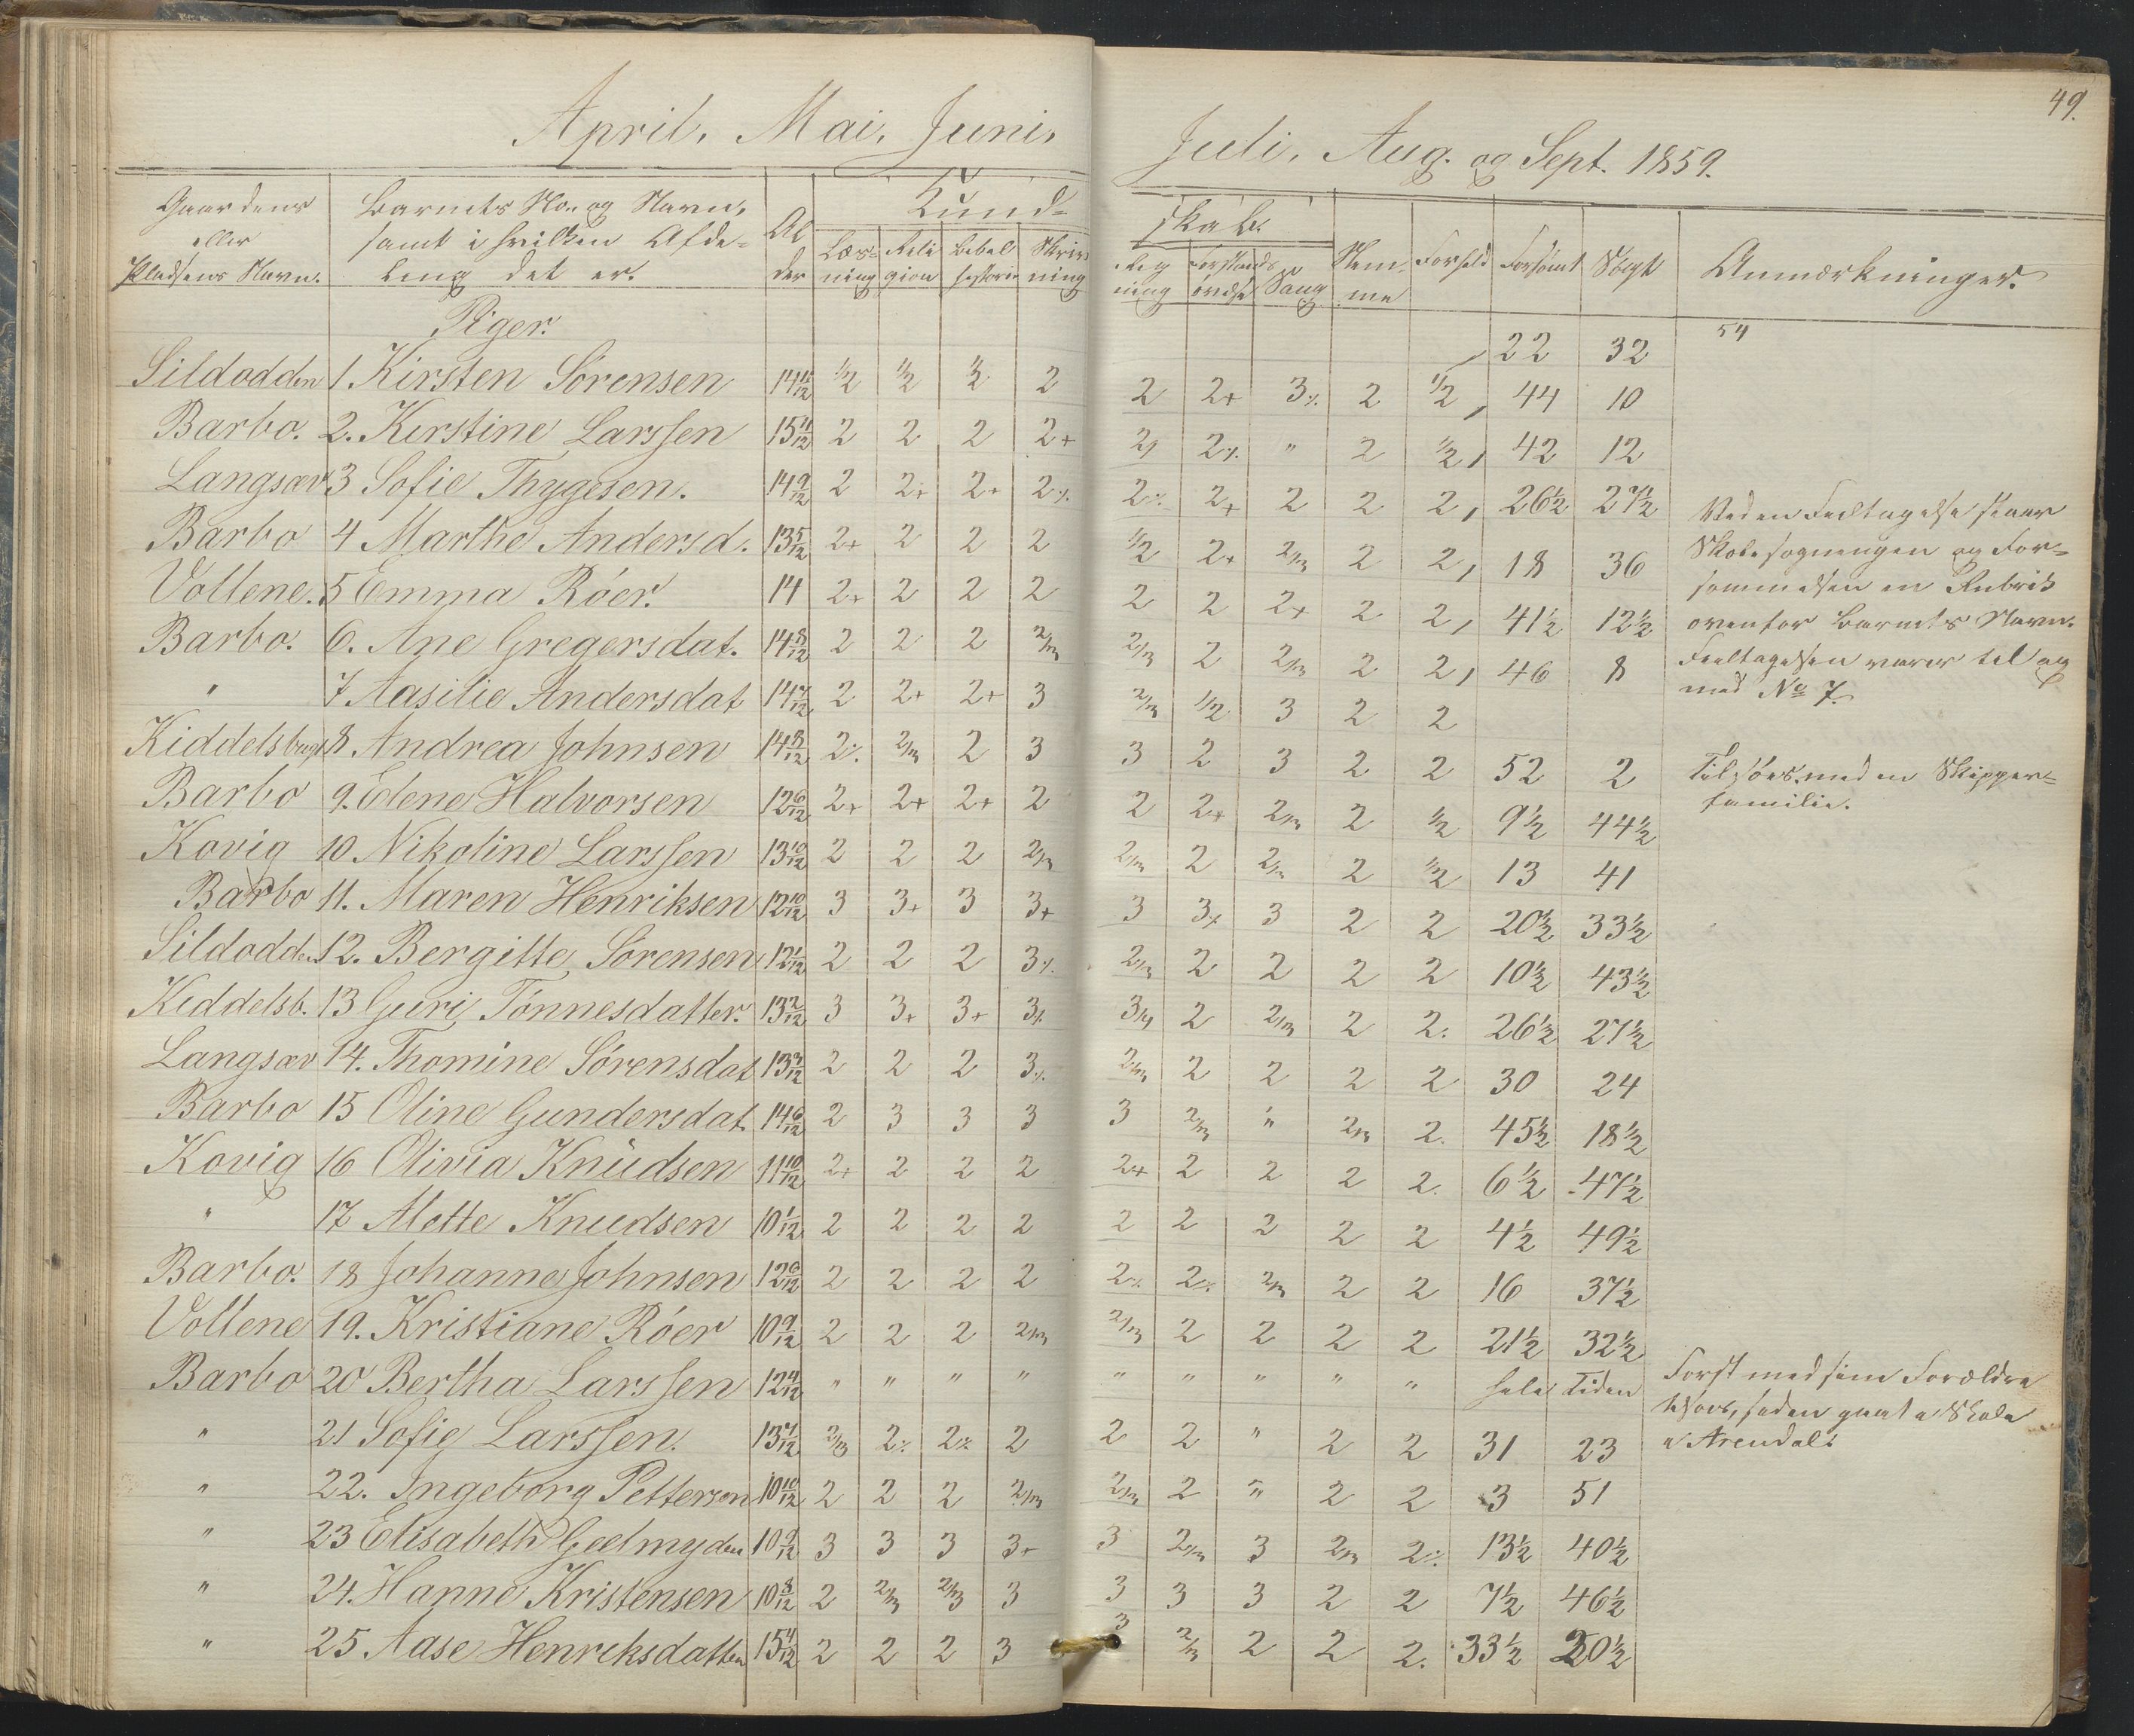 49.
April, Mai, Juni, Juli, Aug. og Sept. 1859.
Gaardens eller Pladsens Navn. | Barnets No. og Navn, samt i hvilken Afdeling det er. | Alder | Kundskab. | Læsning | Religion | Bibelhistorie | Skrivning | Regning | Forstandsøvelse | Sang | Nemme | Forhold | Forsømt | Søgt | Anmærkninger.
Piger.
22 32 54
Sildodden 1 Kirsten Sørensen 14 11/12 1/2 1/2 1/2 2 2 2+ 3% 2 1/2, 44 10
Barbo. 2. Kirstine Larssen 15 11/12 2 2 2 2+ 2% " 2 1/2, 42 12
Langsæv 3 Sofie Thygesen. 14 9/12 2 2+ 2+ 2% 2% 2+ 2 2 2, 26½ 27½
Barbo 4 Marthe Andersd. 13 5/12 2+ 2 2 2 1/2 2+ 2/3 2 2, 18 36
Vollene. 5 Emma Röer. 14 2+ 2 2 2 2 2 2+ 2 2, 41½ 12½
Barbo. 6. Ane Gregersdat. 14 8/12 2 2 2 2/3 2/3 2 2/3 2 2, 46 8
" 7 Aasilie Andersdat 14 7/12 2 2+ 2+ 3 2/3 1/2 3 2 2
Ved en Feiltagelse staar
Skolesøgningen og For=
sømmelsen en Rubrik
ovenfor Barnets Navn.
Feiltagelsen varer til og
med No 7.
Kiddelsbugt 8 Andrea Johnsen 14 8/12 2% 2/3 2 3 3 2 3 2 2 52 2 Tilsøes med en Skipper=
familie.
Barbo 9. Elene Halvorsen 12 6/12 2+ 2+ 2+ 2 2 2+ 2/3 2 1/2 9½ 44½
Kovig 10 Nikoline Larssen 13 10/12 2 2 2 2/3 2/3 2 2/3 2 1/2 13 41
Barbo 11. Maren Henriksen 12 10/12 3 3+ 3 3+ 3 3+ 3 2 2 20½ 33½
Sildodden 12. Bergitte Sørensen 12 1/12 2 2 2 3% 2/3 2 2 2 2 10½ 43½
Kiddelsb. 13 Guri Tönnesdatter. 13 2/12 3 3+ 3+ 3% 3/4 2 2/3 2 2. 26½ 27½
Langsæv 14. Thomine Sörensdat 13 3/12 2 2 2 3% 2/3 2 2 2 2 30 24
Barbo 15 Oline Gundersdat. 14 6/12 2 3 3 3 3 2/3 " 2/3 2. 45½ 18½
Kovig 16 Olivia Knudsen 11 10/12 2+ 2 2 2 2+ 2 2 2 2. 6½ 47½
" 17 Mette Knudsen 10 1/12 2 2 2 2 2 2 2 2 2 4½ 49½
Barbo. 18 Johanne Johnsen 12 6/12 2 2 2 2 2% 2% 2/3 2 2 16 37½
Vollene 19. Kristiane Röer 10 9/12 2 2 2 2/3 2/3 2 2 2 2 21½ 32½
Barbo 20 Bertha Larssen 12 4/12 " " " " " " " " " hele Tiden Først med sine Forældre
tilsøes, siden gaaet i Skole
i Arendal.
" 21 Sofie Larssen. 13 7/12 2/3 2% 2% 2 2 2 " 2 2 31 23
" 22. Ingeborg Petterson 10 10/12 2 2 2 2/3 2/3 2 " 2 2 3 51
" 23 Elisabeth Geelmyden 10 9/12 3 3 3 3+ 3 2/3 3 2/3 2% 13½ 40½
" 24. Hanne Kristensen 10 8/12 2 2/3 2/3 3 3 3 3 2 2 7½ 46½
" 25 Aase Henriksdatter 15 4/12 2 2 2 3 3 2/3 2 2 2. 33½ 20½